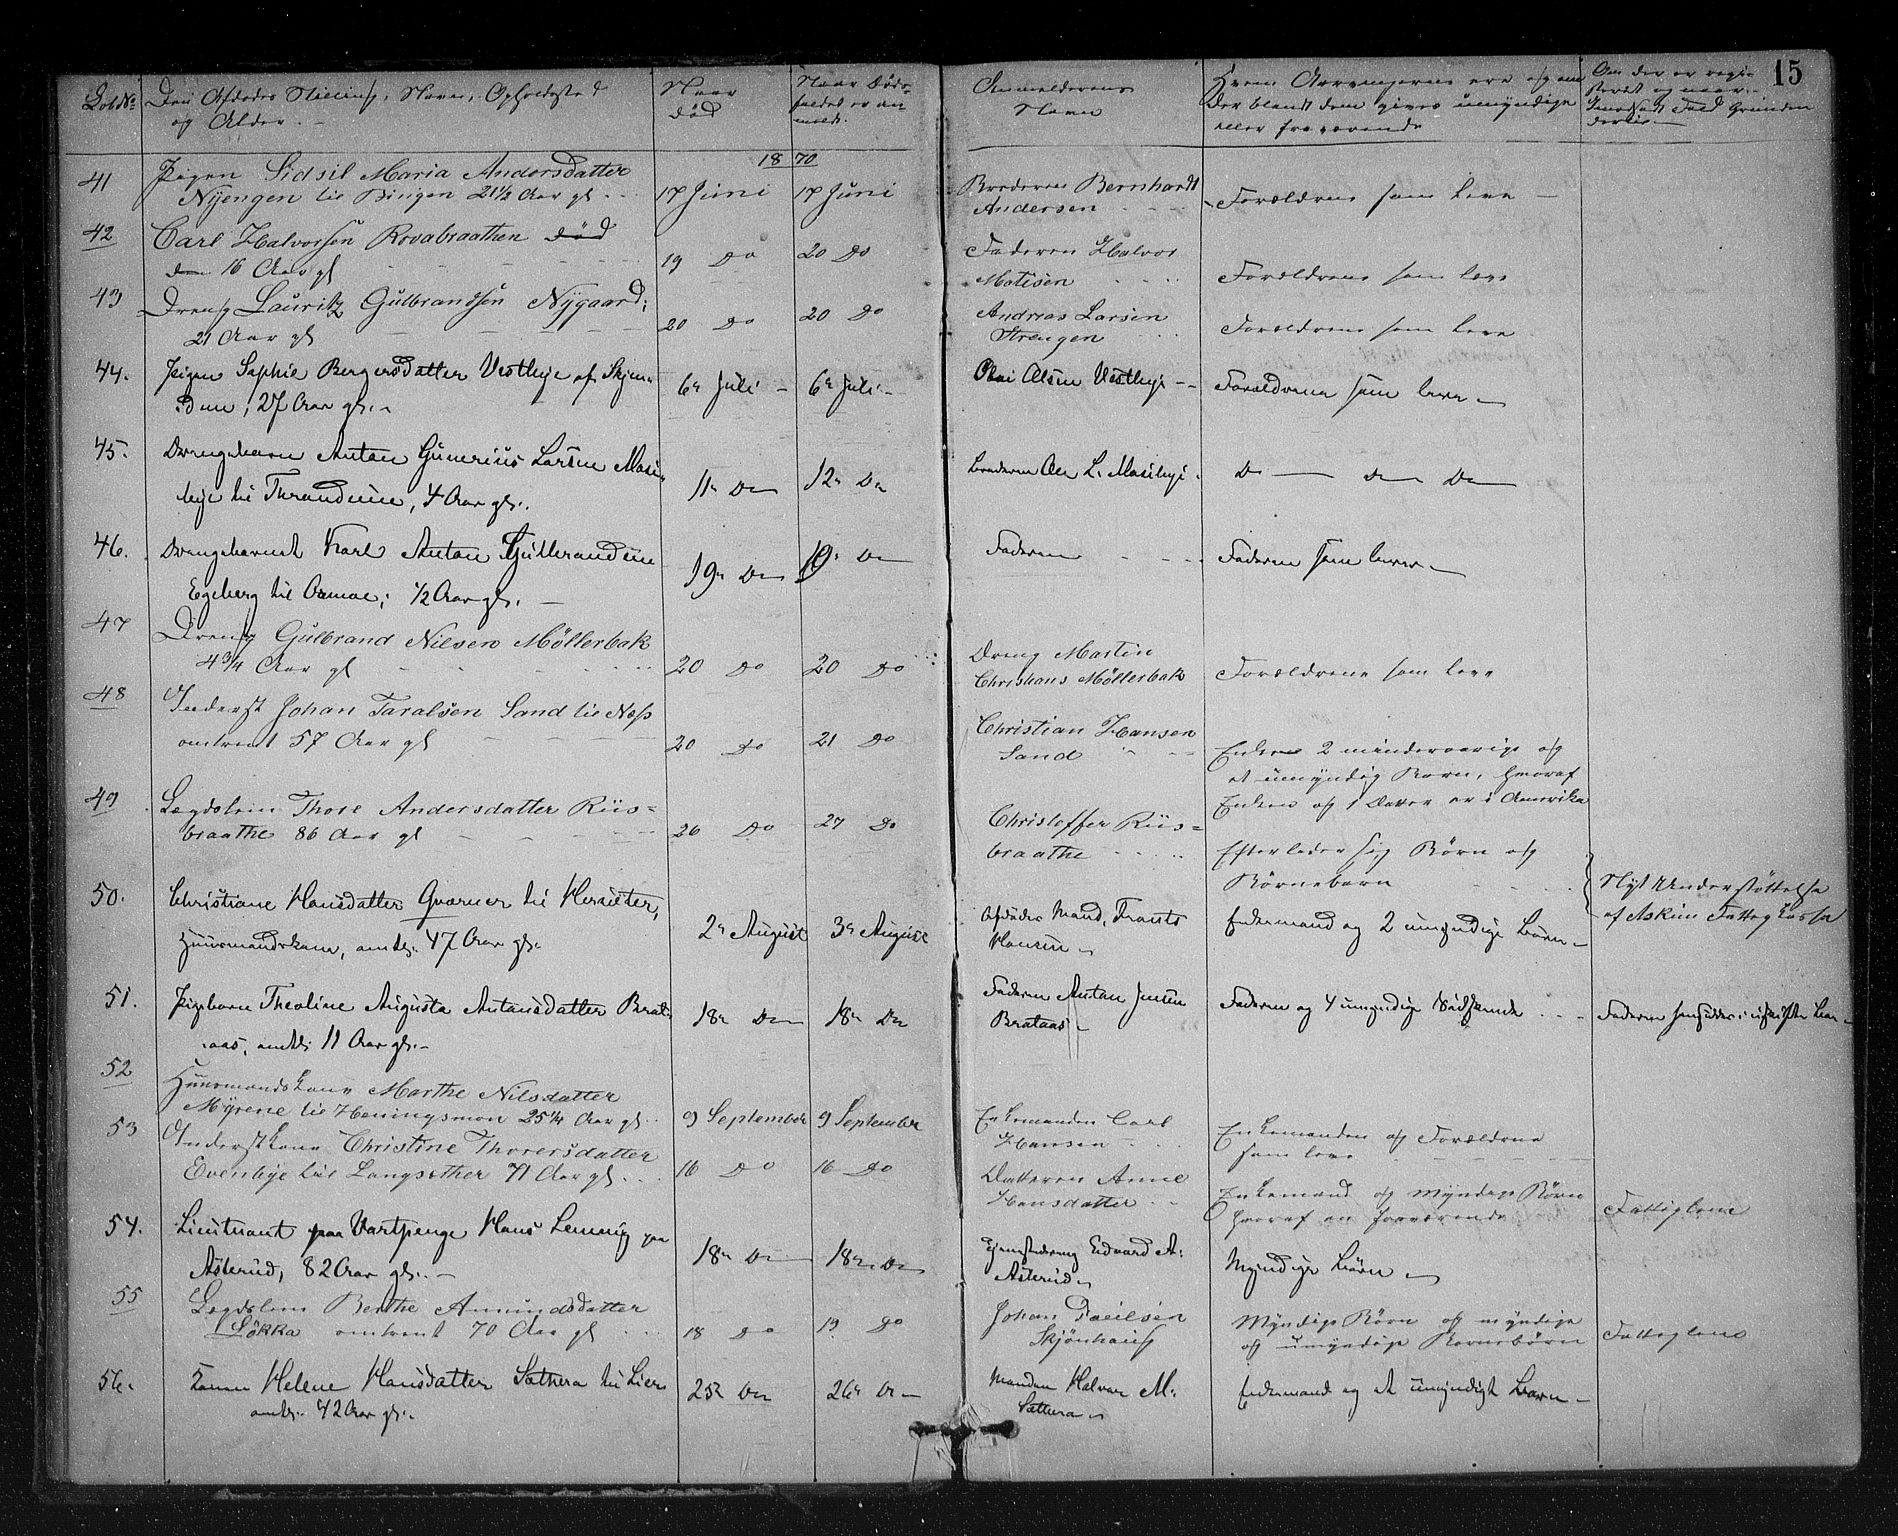 15
Løb No
Den Afdødes Stilling, Navn, Opholdssted
og Alder.
Naar
død
Naar Døds-
faldet er an
meldt.
Anmelderens
Navn
Hvem Arvingerne ere og om
der blandt dem gives umyndige
eller fraværende
Om der er regi-
streret og naar.
Imodsat Fald Grunden
dertil
1870
41 Pigen Sidsil Maria Andersdatter
Nyengen til Bingen 21½ Aar gl 17 Juni 17 Juni Broderen Bernhardt
Andersen Forældrene som leve
42 Carl Halvorsen Rovabraathen død
den 16 Aar gl 19 Do 20 Do Faderen Halvor
Matisen Forældrene som leve
43 Dreng Lauritz Gulbrandsen Nygaard;
21 Aar gl 20 Do 20 Do Andreas Larsen
Strengen Forældrene som leve
44. Pigen Sophie Bergersdatter Vestbye af
27 Aar gl. 6 Juli 6 Juli Olsen Vestbye Forældrene som leve
45. Drengebarn Anton Gunerius Larsen
til Thrandum, 4 Aar gl. 11 Do 12 Do Broderen Ole L. Do Do Do
46. Drengebarnet Karl Anton Gulbrandsen
Egeberg til ; ½ Aar gl. 19 Do 19 Do Faderen Faderen som lever
47 Dreng Gulbrand Nilsen Møllerbak
4¾ Aar gl 20 Do 20 Do Dreng Martin
Christians Møllerbak Forældrene som leve
48 Inderst Johan Taralsen Sand til Næss
omtrent 57 Aar gl 20 Do 21 Do Christian Hansen
Sand Enken 2 mindreaarige og
et umyndig Barn, hvoraf
Enken og 1 Datter er i Amerika
49 Lægdslem Thore Andersdatter Riis-
braathe 86 Aar gl 26 Do 27 Do Christoffer Riis-
braathe Efterlader sig Børn og
Børnebørn
50. Christiane Hansdatter Qværner til
Huusmandskone, omtr. 47 Aar gl. 2 August 3 August Afdødes Mand, Frants
Hansen Enkemand og 2 umyndige Børn Nyt Understøttelse
af Askim Fattigkasse
51. Pigebarn Theoline Augusta Antonsdatter Brat-
aas, omtr. 11 Aar gl. 18 Do 18 Do Faderen Anton Jensen
Brataas Faderen og 4 umyndige Sødskende Faderen hensidder i uskiftet Bo
52 Huusmandskone Marthe Nilsdatter
Myrene til Heningsmon 25¼ Aar gl 9 September 9 September Enkemanden Carl
Hansen Enkemanden og Forældrene
som leve
53 Inderstkone Christine Thorersdatter
Evenbye til Langsæther 71 Aar gl 16 Do 16 Do Datteren Anne
Hansdatter Enkemand og myndige Børn
hvoraf en fraværende Fattiglem
54. Lieutnant paa Vartpenge Hans Lemmig paa
Asterud, 82 Aar gl. 18 Do 18 Do Tjenestedreng Edvard A.
Asterud Myndige Børn
55 Lægdslem Berthe Amundsdatter
Løkka omtrent 70 Aar gl 18 Do 19 Do Johan Paulsen
Skjønhaug Myndige Børn og myndige
og umyndige Børnebørn Fattiglem
56. Konen Helene Hansdatter Sæthera til Lier
omtr. 42 Aar gl. 25 Do 26 Do Manden Halvor M.
Sæthera Enkemand og et umyndigt Barn